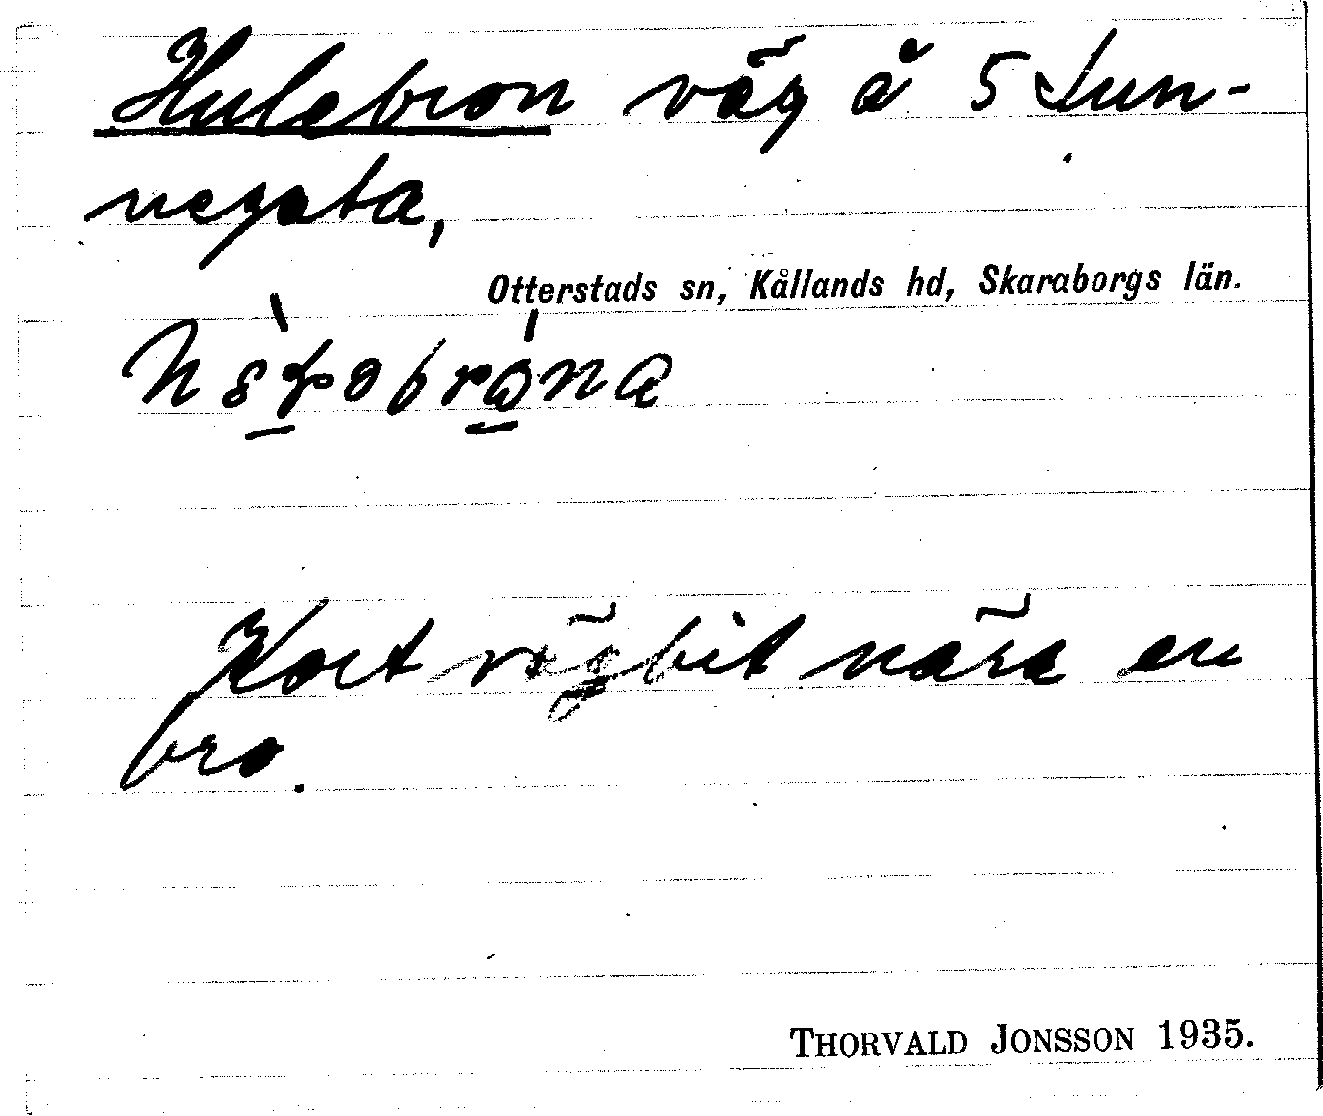 Hulebron väg å 5 Sun-
negata,
Otterstads sn, Kållands hd, Skaraborgs län.
Kort vägbit nära en
bro.
THORVALD JONSSON 1935.